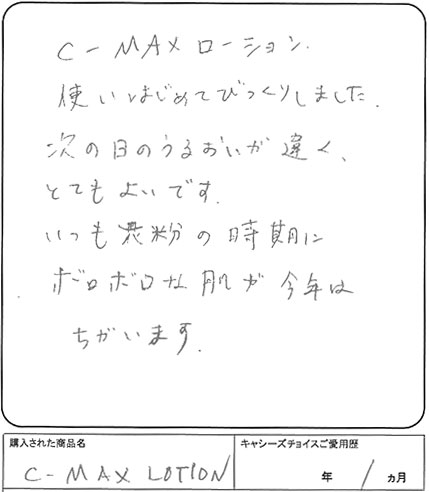 C-MAXローション.
使いはじめてびっくりしました.
次の日のうるおいが違く、
とてもよいです.
いつも花粉の時期に
ボロボロな肌が今年は
ちがいます.
購入された商品名
C-MAX LOTION
キャシーズチョイスご愛用歴
年 / ヵ月